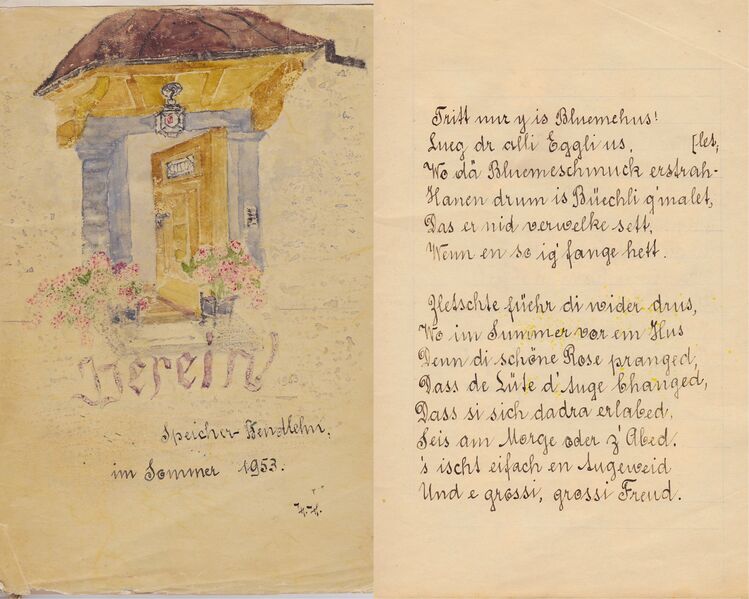 Herein
Speicher-Bendlehn,
im Sommer 1953.
H.H.
Tritt nur y is Bluemehus!
Lueg dr alli Eggli us,
Wo dä Bluemeschmuck erstrah-[let,
Hanen drum is Büechli g'malet,
Das er nid verwelke sett,
Wenn en so ig'fange hett.
Zletschte füehr di wider drus,
Wo im Summer vor em Hus
Denn di schöne Rose pranged,
Dass de Lüte d'Auge b'hanged,
Dass si sich dadra erlabed,
Seis am Morge oder z'Abed.
's ischt eifach en Augeweid
Und e grossi, grossi Freud.